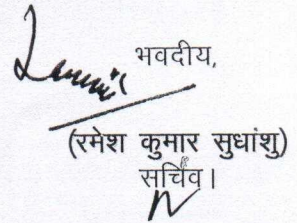 भवदीय,
(रमेश कुमार सुधांशु)
सचिव।